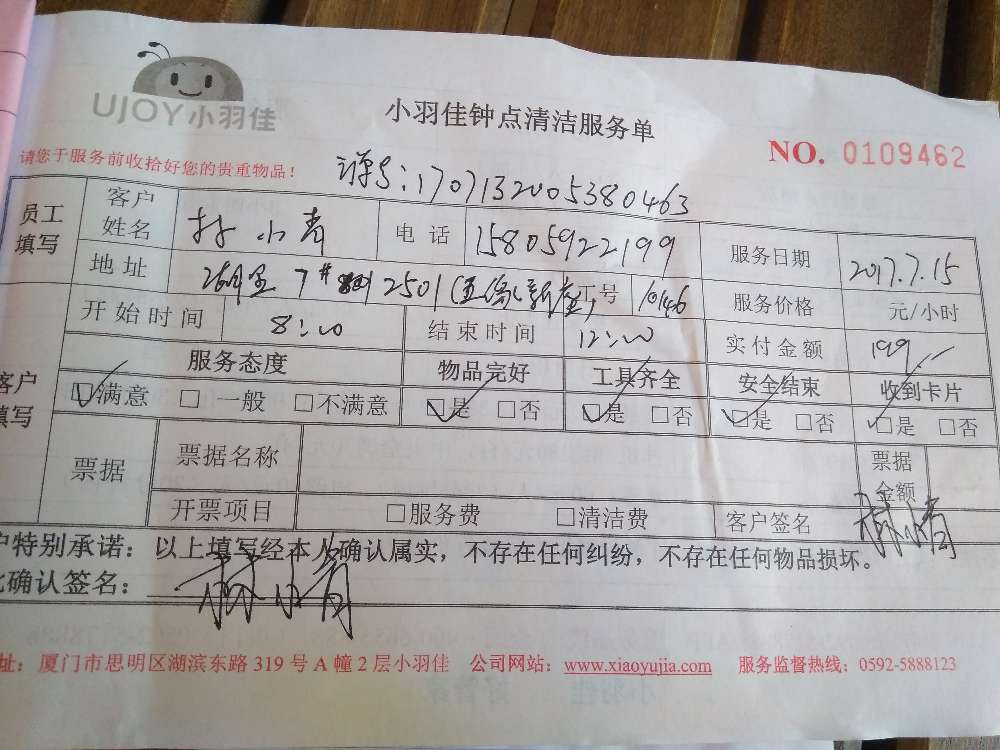 UJOY小羽佳
小羽佳钟点清洁服务单
NO. 0109462
请您于服务前收拾好您的贵重物品！
单号：1707132005380463
员工填写
客户姓名 林小青 电话 15805922199 服务日期 2017.7.15
地址 7# 2501 工号 10146 服务价格 元/小时
客户填写
开始时间 8:00 结束时间 12:00 实付金额 199
服务态度 物品完好 工具齐全 安全结束 收到卡片
☑满意 □一般 □不满意 ☑是 □否 ☑是 □否 ☑是 □否 ☑是 □否
票据 票据名称 票据金额
开票项目 □服务费 □清洁费 客户签名 林小青
户特别承诺：以上填写经本人确认属实，不存在任何纠纷，不存在任何物品损坏。
此确认签名： 林小青
址：厦门市思明区湖滨东路319号A幢2层小羽佳 公司网站：www.xiaoyujia.com 服务监督热线：0592-5888123